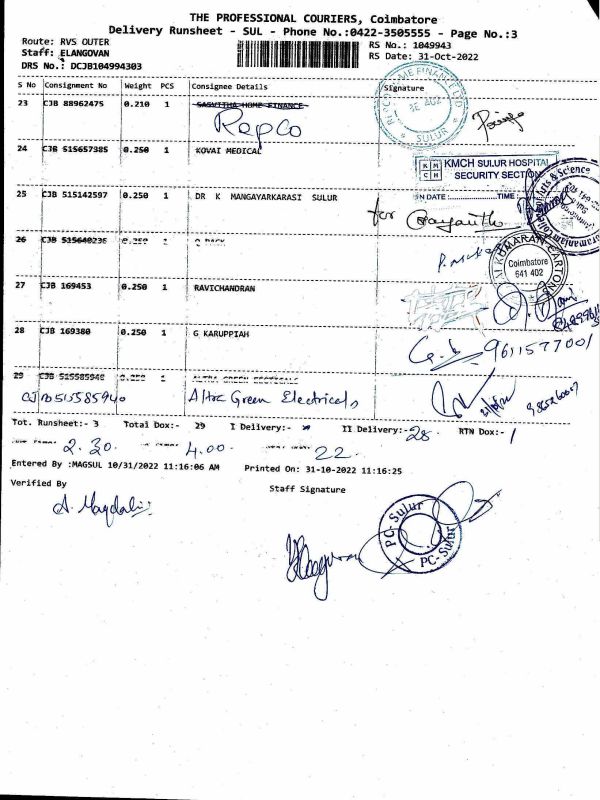 THE PROFESSIONAL COURIERS, Coimbatore
Delivery Runsheet - SUL - Phone No.:0422-3505555 - Page No.:3
Route: RVS OUTER
RS No.: 1049943
Staff: ELANGOVAN
RS Date: 31-Oct-2022
DRS No.: DCJB104994303
S No Consignment No Weight PCS Consignee Details Signature
23 CJB 88962475 0.210 1 SASVITHA HOME FINANCE
Repco
SULUR
24 CJB 515657385 0.250 1 KOVAI MEDICAL
KMCH SULUR HOSPITAL
SECURITY SECTION
IN DATE: TIME:
Arts & Science
25 CJB 515142597 0.250 1 DR K MANGAYARKARASI SULUR
for
26 CJB 515640236 0.250 1
KUMARAN CARTONS
Coimbatore
641 402
27 CJB 169453 0.250 1 RAVICHANDRAN
28 CJB 169380 0.250 1 G KARUPPIAH
9611577001
29 CJB 515585940 0.250 1 ALTRA GREEN ELECTRICALS
CJB515585940 Altra Green Electricals
Tot. Runsheet:- 3 Total Dox:- 29 I Delivery:- II Delivery:- 28 RTN Dox:- 1
2.30. 4.00. 22.
Entered By :MAGSUL 10/31/2022 11:16:06 AM Printed On: 31-10-2022 11:16:25
Verified By Staff Signature
A. Magdali
PC-Sulur
PC-Sulur